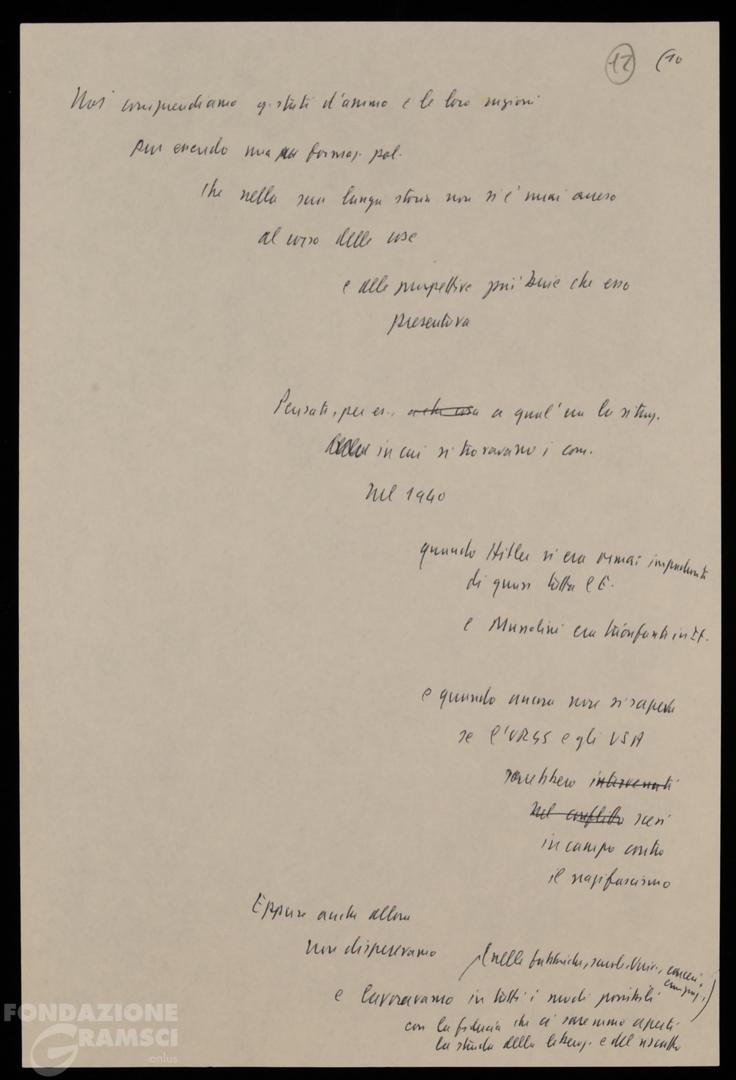 12 (10
Noi comprendiamo q. stati d'animo e le loro ragioni
pur essendo una formaz. pol.
che nella sua lunga storia non si è mai arresa
al corso delle cose
e alle prospettive più buie che esso
presentava
Pensate, per es., a che cosa a qual'era la situaz.
in cui si trovavano i com.
nel 1940
quando Hitler si era ormai impadronito
di quasi tutta l'E.
e Mussolini era trionfante in It.
e quando ancora non si sapeva
se l'URSS e gli USA
sarebbero intervenuti
nel conflitto scesi
in campo contro
il nazifascismo
Eppure anche allora
non disperavamo
(nelle fabbriche, scuole, Univ., carceri,
e lavoravamo in tutti i modi possibili
con la fiducia che ci saremmo aperti
la strada della liberaz. e del riscatto
FONDAZIONE
GRAMSCI
onlus